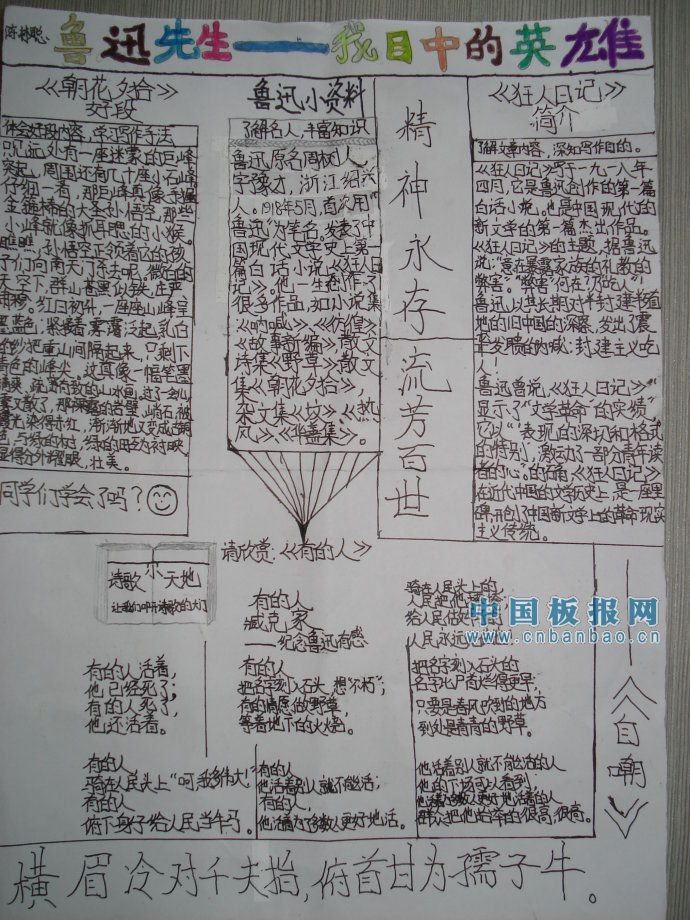 陈林聪
鲁迅先生——我目中的英雄
《朝花夕拾》
好段
体会好段内容,学习写作手法
只见远处有一座迷蒙的巨峰
突起,周围还有几十座小石峰
仔细一看,那巨峰真像手握
金箍棒的大圣孙悟空,那些
小峰就像抓耳腮的小猴。
瞧瞧,孙悟空正领着它的孩
子们向南天门杀去呢。微白的
天空下,群山苍黑似铁,庄严
肃穆。红日初升,一座座山峰呈
墨蓝色,紧接着,雾霭泛起,乳白
的纱把重山间隔起来,只剩下
青色的峰尖,这真像一幅笔墨
清爽,疏密有致的山水画,过了一会儿
雾又散了,那裸露的岩壁,峭石,被
霞光染得赤红,渐渐地又变成古铜
色,与绿的树,绿的田互为衬映,
显得分外耀眼,壮美。
同学们学会了吗?
鲁迅小资料
了解名人,丰富知识
鲁迅原名周树人,
字豫才,浙江绍兴
人。1918年5月,首次用“
鲁迅”为笔名,发表了中
国现代文学史上第一
篇白话小说《狂人日
记》。他一生创作了
很多作品,如小说集
《呐喊》、《彷徨》
《故事新编》,散文
诗集《野草》,散文
集《朝花夕拾》,
杂文集《坟》、《热
风》、《华盖集》。
精神永存
流芳百世
《狂人日记》
简介
了解文章内容,深知写作目的。
《狂人日记》写于一九一八年
四月,它是鲁迅创作的第一篇
白话小说。也是中国现代的
新文学的第一篇杰出作品。
《狂人日记》的主题,据鲁迅
说:“意在暴露家族的礼教的
弊害。”“弊害”何在?乃“吃人”!
鲁迅以其长期对半封建半殖
地的旧中国的深察,发出了震
聋发聩的呐喊:封建主义吃
人!
鲁迅曾说,《狂人日记》
显示了“文学革命”的实绩,
它以“表现的深切和格式
的特别,激动了一部分青年读
者的心。”的石膏,《狂人日记》
在近代中国的文学历史上,是一座里
碑,开创了中国新文学上的革命现实
主义传统。
诗歌小天地
请欣赏:《有的人》
有的人
臧克家
——纪念鲁迅有感
有的人活着,
他已经死了;
有的人死了,
他还活着。
有的人
骑在人民头上“呵,我多伟大!”
有的人
俯下身子给人民当牛马。
有的人
把名字刻入石头,想“不朽”;
有的情愿做野草,
等着地下的火烧。
有的人
他活着别人就不能活;
有的人,
他活着为了多数人更好地活。
骑在人民头上的,
人民把他摔垮;
给人民做牛马的,
人民永远记住他!
把名字刻入石头的
名字比尸首烂得更早;
只要是春风吹到的地方
到处是青青的野草。
他活着别人就不能活的人
他的下场可以看到;
他活着为多数人更好地活着的人,
群众把他抬举的很高,很高。
——《自嘲》
横眉冷对千夫指,俯首甘为孺子牛。
中国板报网
www.cnbanbao.cn